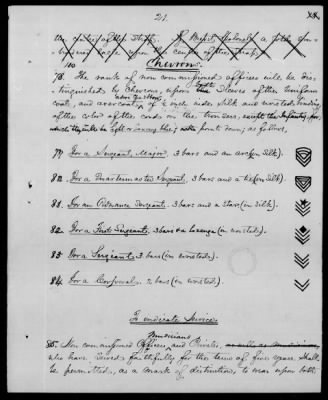 21.
Chevrons.
78. The rank of non commissioned officers will be dis-
tinguished by Chevrons, upon both Sleeves of the uniform
coat, and over coat, of ½ inch wide Silk and worsted binding
of the color of the cord on the trousers, except the Infantry, for
front seam; as follows,
79. For a Sergeant, Major, 3 bars and an arc (in Silk).
80. For a Quartermaster Sergeant, 3 bars and a tie (in Silk).
81. For an Ordnance Sergeant, 3 bars and a Star (in Silk).
82. For a First Sergeant, 3 bars & a Lozenge (in worsted).
83. For a Sergeant, 3 bars (in worsted).
84. For a Corporal, 2 bars (in worsted).
To indicate Service.
Musicians
85. Non commissioned Officers, and Privates,
who have served faithfully for the term of five years shall
be permitted, as a mark of distinction, to wear upon both